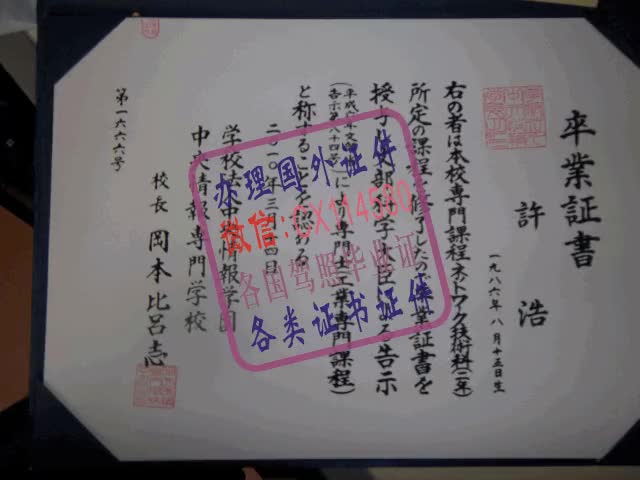 卒業証書
許 浩
一九八六年八月十五生
右の者は本校専門課程ネットワーク技術科(二年)
所定の課程を修了したので卒業証書を
授与し文部科学大臣による告示
(平成六年文
告示第八十四号)により専門士(工業専門課程)
と称することを認める
二〇一〇年三月十四日
学校法人中央情報学園
中央情報専門学校
校長 岡本比呂志
第一六六六号
办理国外证件
微信:GX114580
各国驾照毕业证
各类证书证件